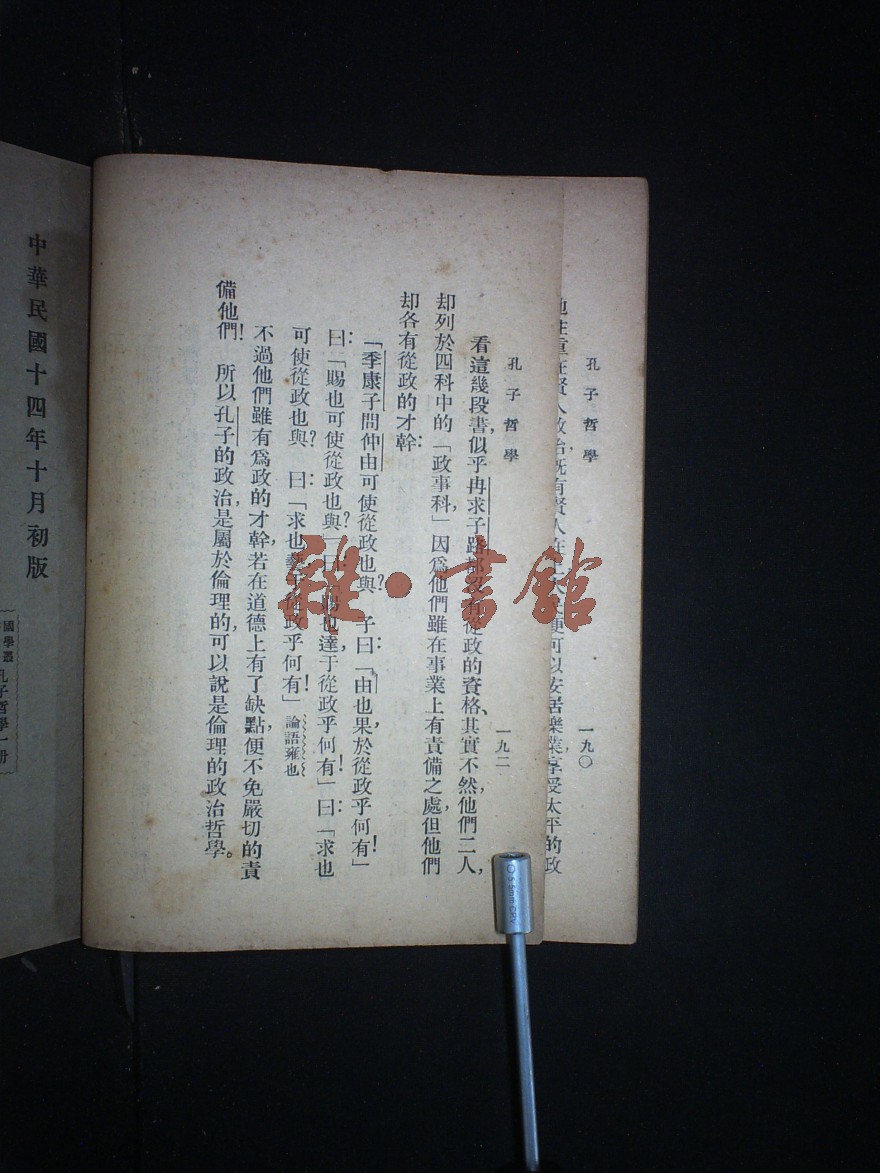 孔子哲學
一九〇
地注重在賢人政治，既有賢人在上，人民便可以安居樂業，享受太平的政
孔子哲學
一九二
看這幾段書，似乎冉求子路都沒有從政的資格、其實不然，他們二人，
却列於四科中的「政事科」，因爲他們雖在事業上有責備之處，但他們
却各有從政的才幹：
「季康子問仲由可使從政也與？子曰：「由也，果於從政乎何有！」
曰：「賜也可使從政也與？」曰：「賜也，達于從政乎何有！」曰：「求也
可使從政也與？曰：「求也藝于從政乎何有！」論語雍也
不過他們雖有爲政的才幹，若在道德上有了缺點，便不免嚴切的責
備他們！所以孔子的政治，是屬於倫理的，可以說是倫理的政治哲學。
中華民國十四年十月初版
國學叢
孔子哲學一册
雜·書館